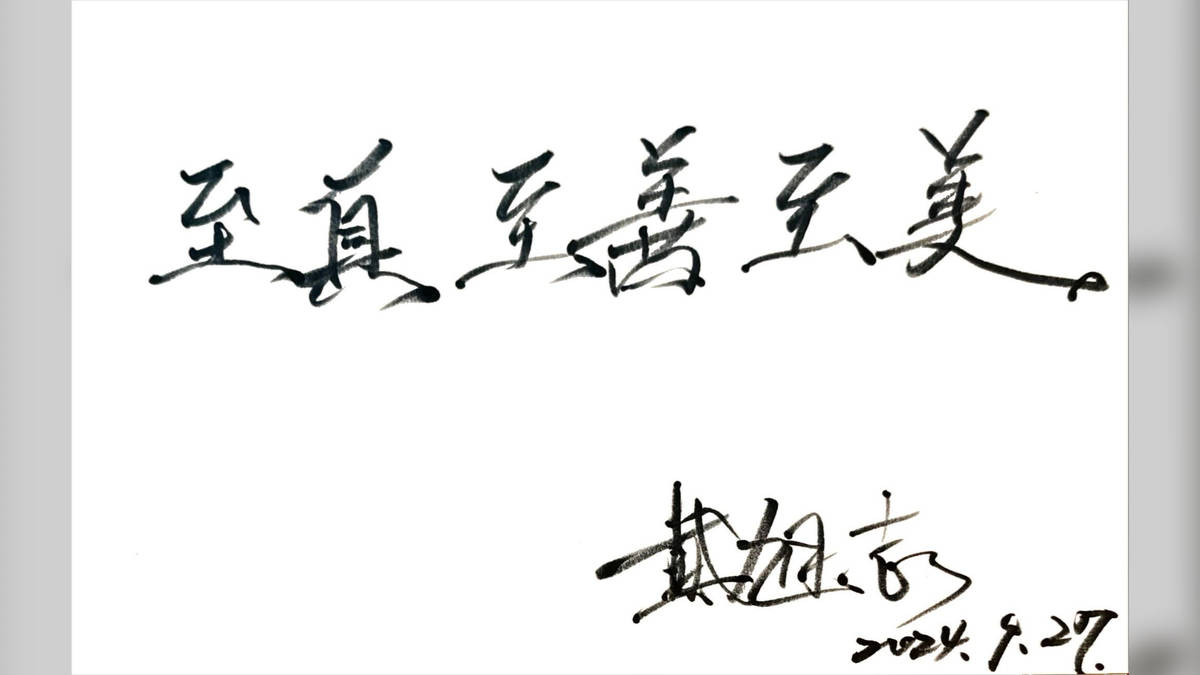 至真至善至美
戴
2024.9.27.